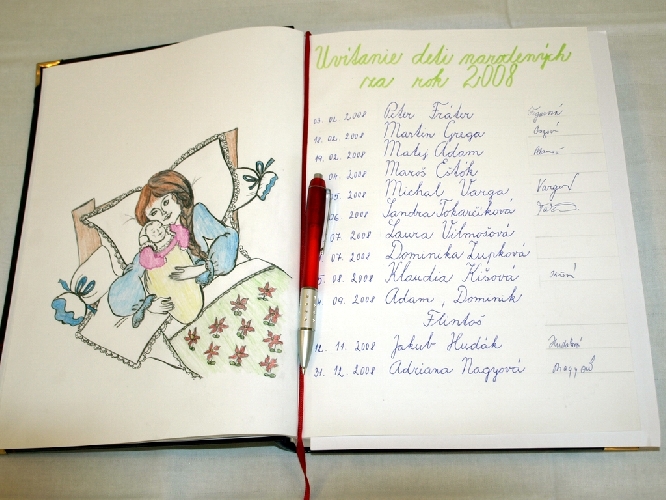 Uvítanie detí narodených
za rok 2008
02. 2008 Peter Fráter
02. 2008 Martin Grega
14. 02. 2008 Matej Adam
04. 2008 Maroš
05. 2008 Michal Varga Vargová
06. 2008 Sandra Tokarčíková
07. 2008 Laura Vilmošová
07. 2008 Dominika Zupková
08. 2008 Klaudia Kišová
09. 2008 Adam, Dominik
Flintoš
12. 11. 2008 Jakub Hudák Hudáková
31. 12. 2008 Adriana Nagyová Nagyová